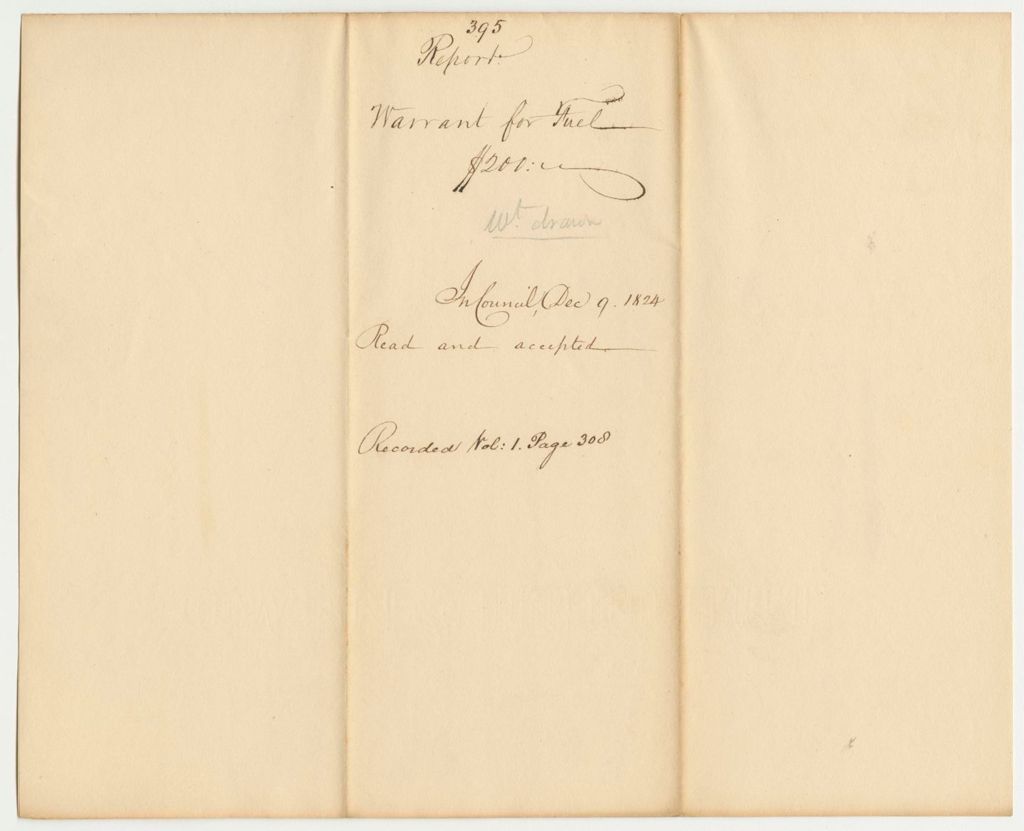 395
Report
Warrant for Fuel
$200:
Wt. drawn
In Council, Dec 9. 1824
Read and accepted
Recorded Vol: 1. Page 308